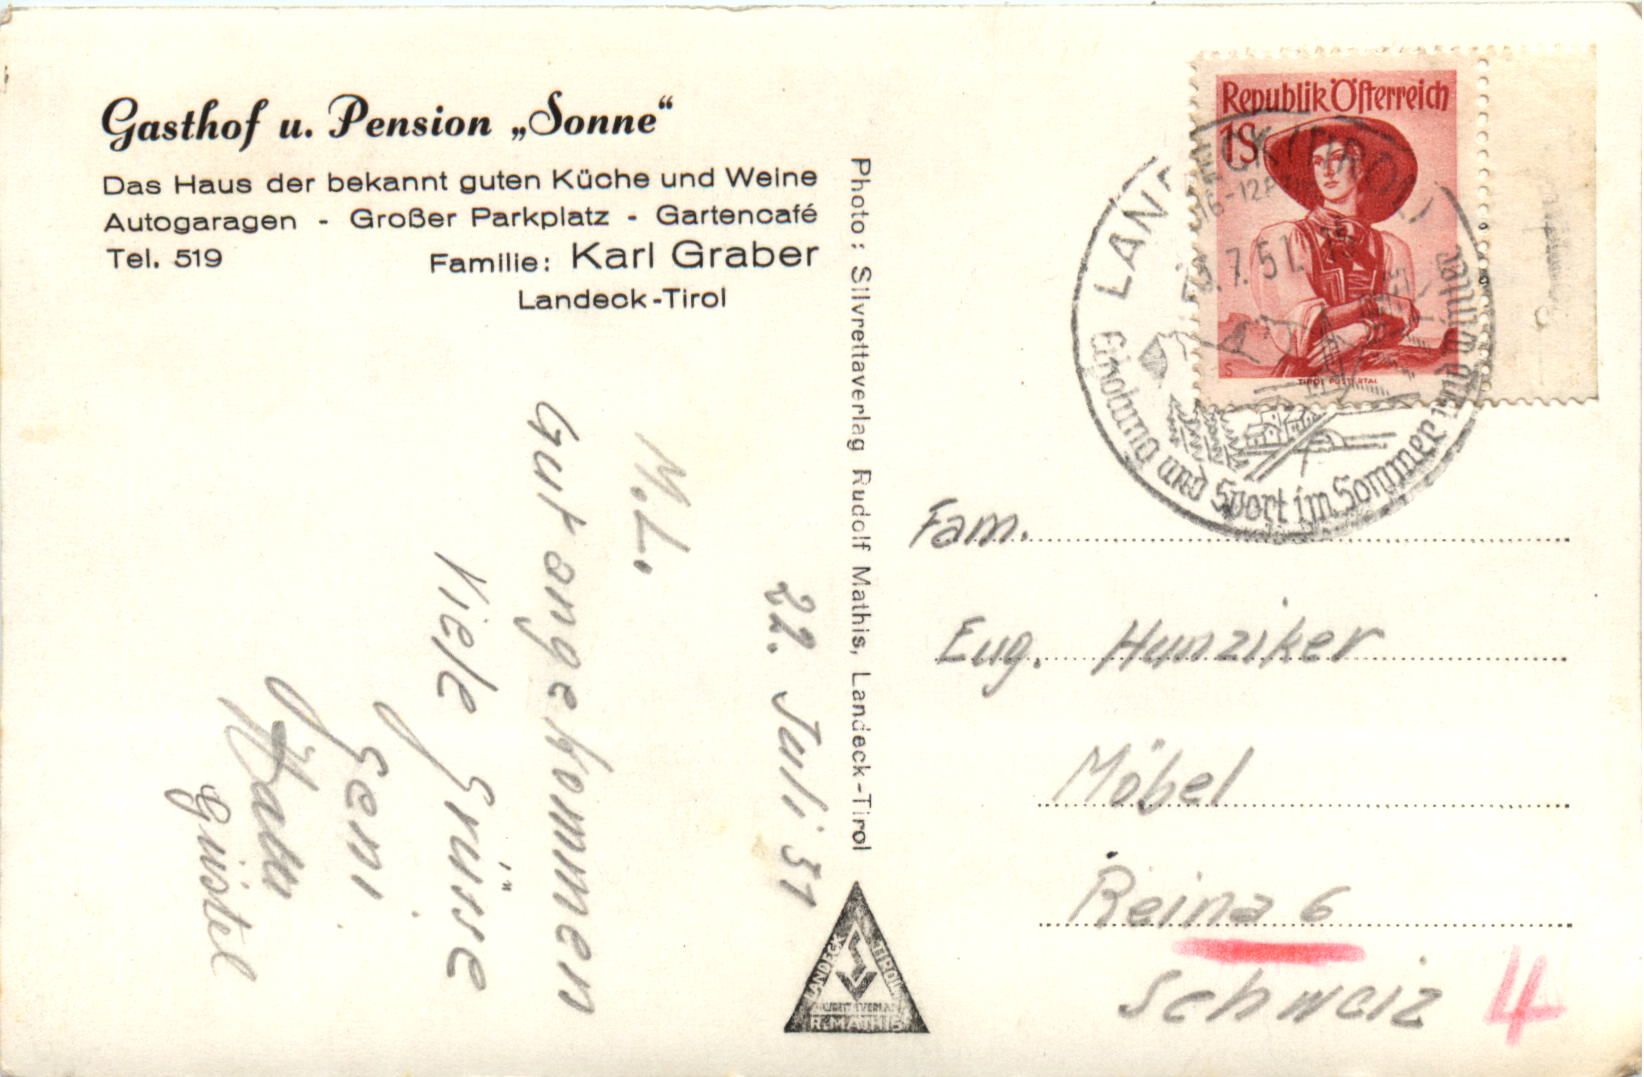 Gasthof u. Pension „Sonne“
Das Haus der bekannt guten Küche und Weine
Autogaragen - Großer Parkplatz - Gartencafé
Tel. 519 Familie: Karl Graber
Landeck-Tirol
22. Juli 51
M. L.
Gut angekommen
Viele Grüsse
Geni
Güstel
Photo: Silvrettaverlag Rudolf Mathis, Landeck-Tirol
LANDECK TIROL
R. MATHIS
Republik Österreich
1S
TIROL PUSTERTAL
LANDECK (TIROL)
7.51
Erholung und Sport im Sommer und Winter
Fam.
Eug. Hunziker
Möbel
Reina 6
Schweiz 4